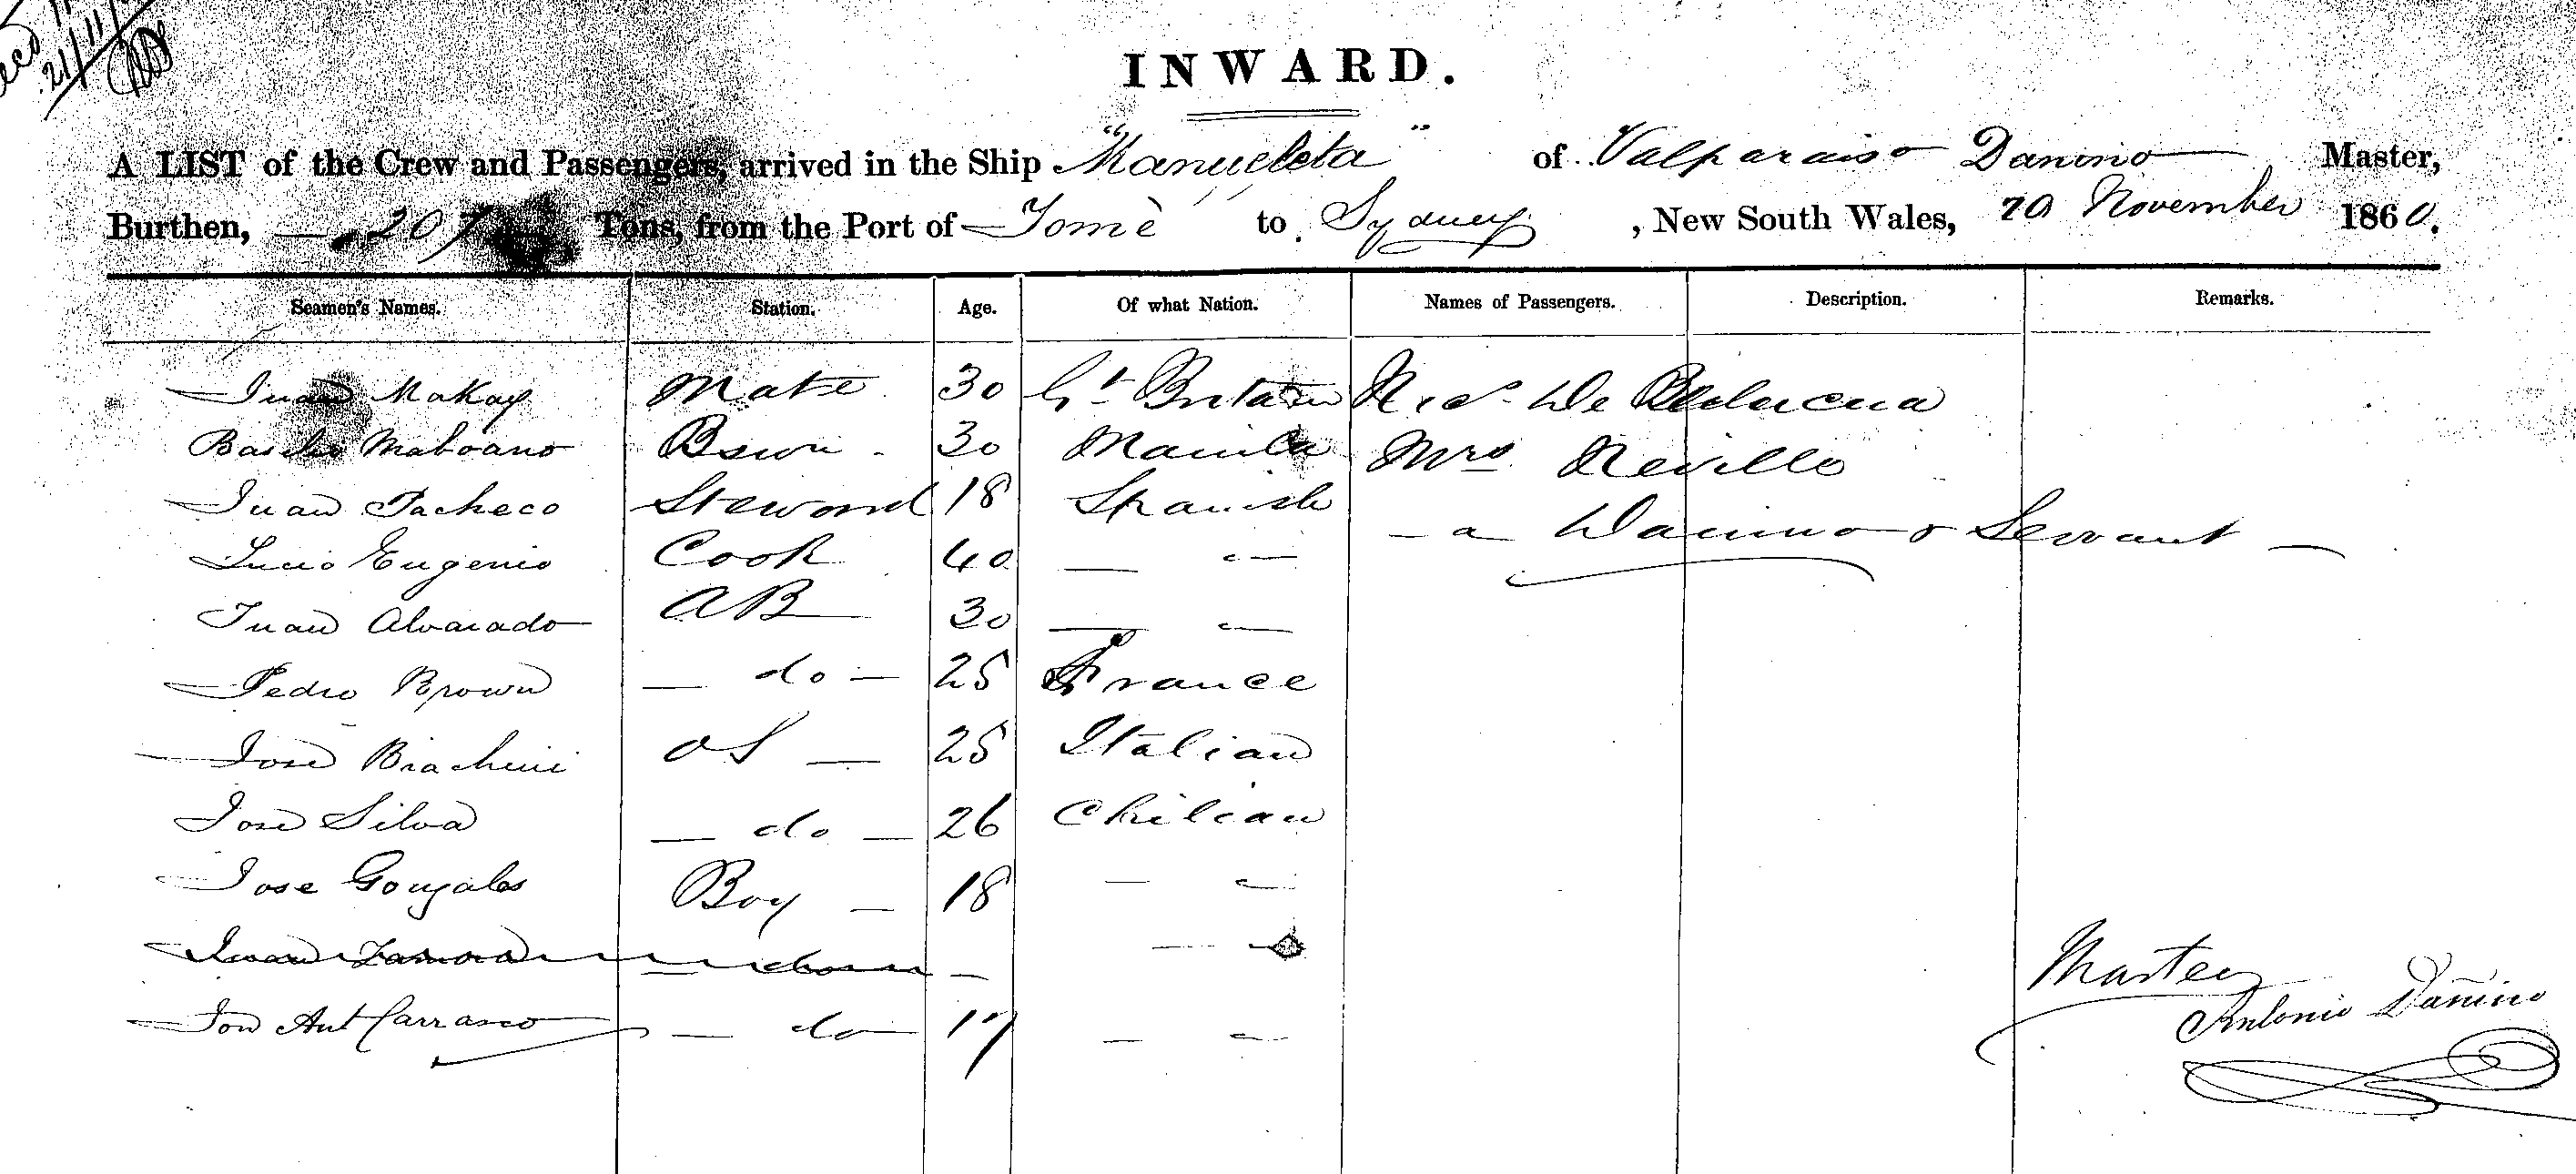 21/11/
INWARD.
A LIST of the Crew and Passengers, arrived in the Ship "Manueleta" of Valparaiso Danino Master,
Burthen, 207 Tons, from the Port of Tomè to Sydney, New South Wales, 20 November 1860.
Seamen's Names. Station. Age. Of what Nation. Names of Passengers. Description. Remarks.
Juan McKay Mate 30 Gt Britain De
Maboano Bswn 30 Manila Mrs Neville
Juan Pacheco Steward 18 Spanish — a — Danino & Servant —
Lucio Eugenio Cook 40 — "—
Juan Alvarado AB 30 — "—
Pedro Brown — do — 25 France
José Biachini OS — 25 Italian
José Silva — do — 26 Chilian
Jose Gonzales Boy — 18 — "—
Juan — — "—
José Ant Carrasco — do — 17 — "—
Master
Antonio Dañino